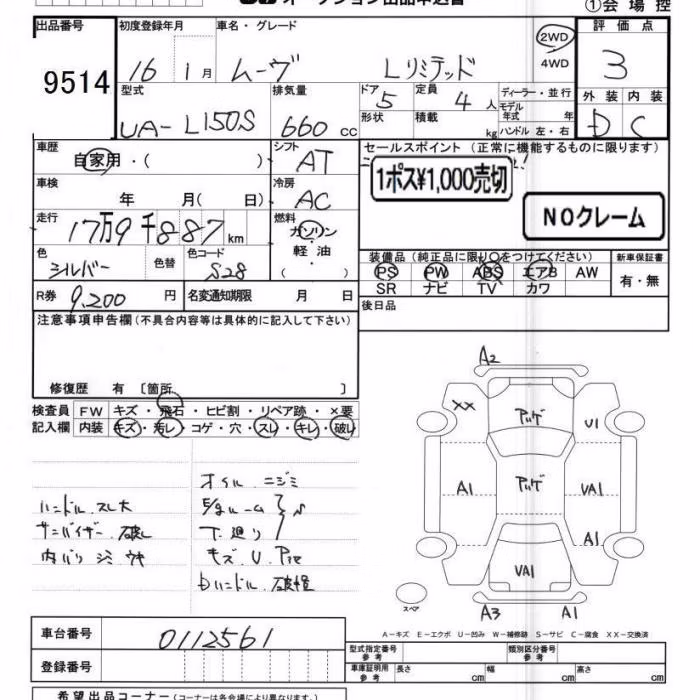 オークション出品申込書
①会場控
出品番号 初度登録年月 車名・グレード 評価点
9514 16 1月 ムーヴ Lリミテッド 2WD 4WD 3
型式 排気量 ドア 定員 ディーラー・並行 外装 内装
UA-L150S 660cc 5 4人 モデル年式 年 D C
形状 積載 kg ハンドル 左・右
車歴 シフト セールスポイント(正常に機能するものに限ります)
自家用・( ) AT
1ポス¥1,000売切
車検 冷房
年 月( 日) AC
NOクレーム
走行 燃料
17万9千887km ガソリン
軽油
( )
色 色替 色コード
シルバー S28
装備品(純正品に限り○をつけてください) 新車保証書
PS PW ABS エアB AW 有・無
SR ナビ TV カワ
R券 9,200円 名変通知期限 月 日
後日品
注意事項申告欄(不具合内容等は具体的に記入して下さい)
修復歴 有 〔箇所 〕
検査員 FW キズ・飛石・ヒビ割・リペア跡・×要
記入欄 内装 キズ・汚レ・コゲ・穴・スレ・キレ・破レ
オイルニジミ
ハンドルスレ大
サンバイザー破レ
下廻リ
内バリシミウキ
キズ.U
Dハンドル破損
A2
XX アルゲ U1
A1 アルゲ UA1
A1
UA1
スペア
A3 A1
A-キズ E-エクボ U-凹み W-補修跡 S-サビ C-腐食 XX-交換済
車台番号 0112561
登録番号
型式指定番号 参考 類別区分番号 参考
車庫証明用 参考 長さ cm 幅 cm 高さ cm
希望出品コーナー(コーナーは各会場により異なります。)